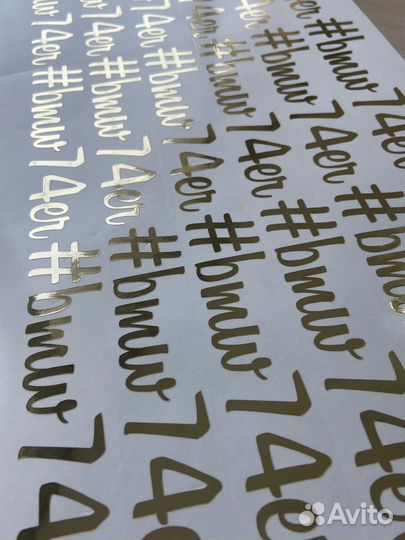 #bmw74er#bmw74
74er#bmw74er#bmw74er
74er#bmw74er#bmw74er
74er#bmw74er#bmw74er
#bmw74er#bmw74
#bmw74er#bmw
Avito